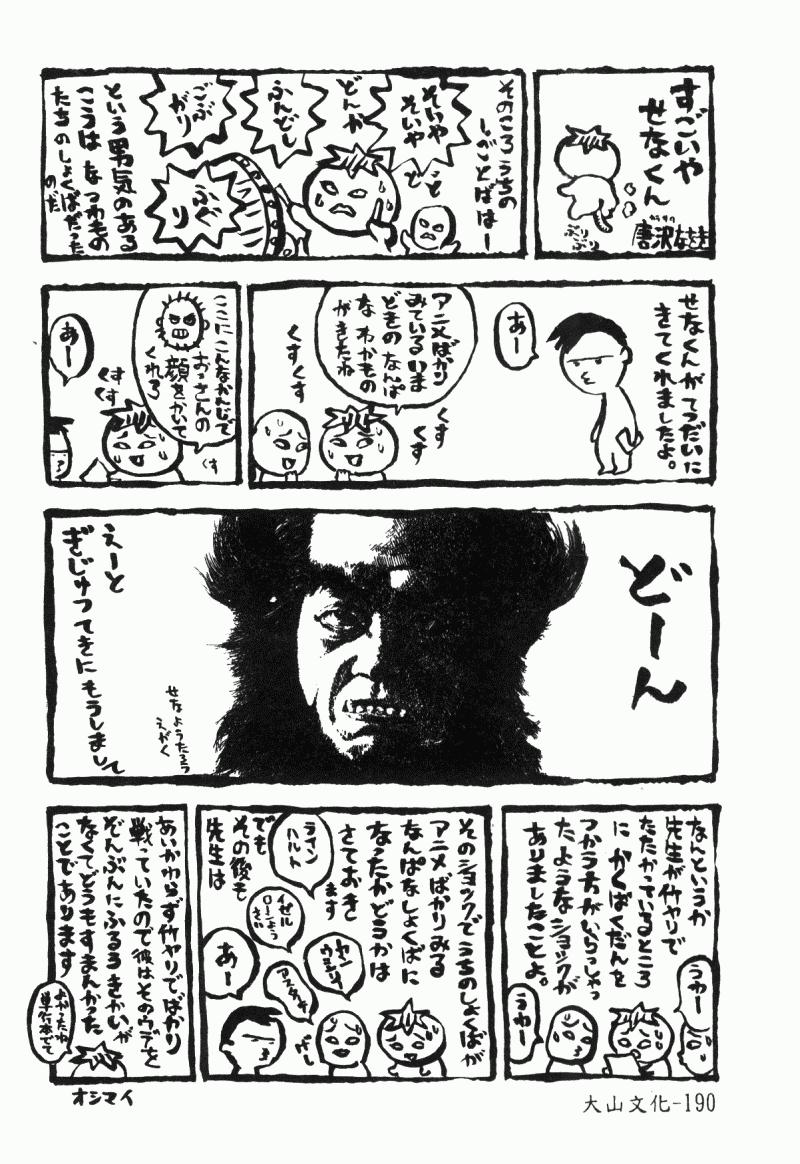 すごいや
せなくん
唐沢なをき
ぷり
ぷり
そのころうちの
しごとばはー
そいや
そいや
どんか
ふんどし
ごぶ
がり
ふぐ
り
という男気のある
こうは なつわもの
たちのしょくばだった
のだ
せなくんがてつだいに
きてくれましたよ。
あー
アニメばかり
みているいま
どきの なんぱ
な わかもの
がきたね
くす
くす
くすくす
ここにこんなかんじで
おっさんの
顔をかいて
くれろ
くす
くす
くす
あー
どーん
せなようたろう
えがく
えーと
ぎじゅつてきにもうしまして
なんというか
先生が竹ヤリで
たたかっているところ
にかくばくだんを
つかう方がいらっしゃっ
たようなショックが
ありましたことよ。
うわー
うわー
そのショックでうちのしょくばが
アニメばかりみる
なんぱなしょくばに
なったかどうかは
さておき
ます
ライン
ハルト
でも
その後も
先生は
イゼル
ローンよう
さい
ヤン
ウェンリー
アスターテ
あー
あいかわらず竹ヤリでばかり
戦っていたので彼はそのウデを
ぞんぶんにふるうきかいが
なくてどうもすまんかった
ことであります
よかったね
単行本でて
オシマイ
大山文化-190